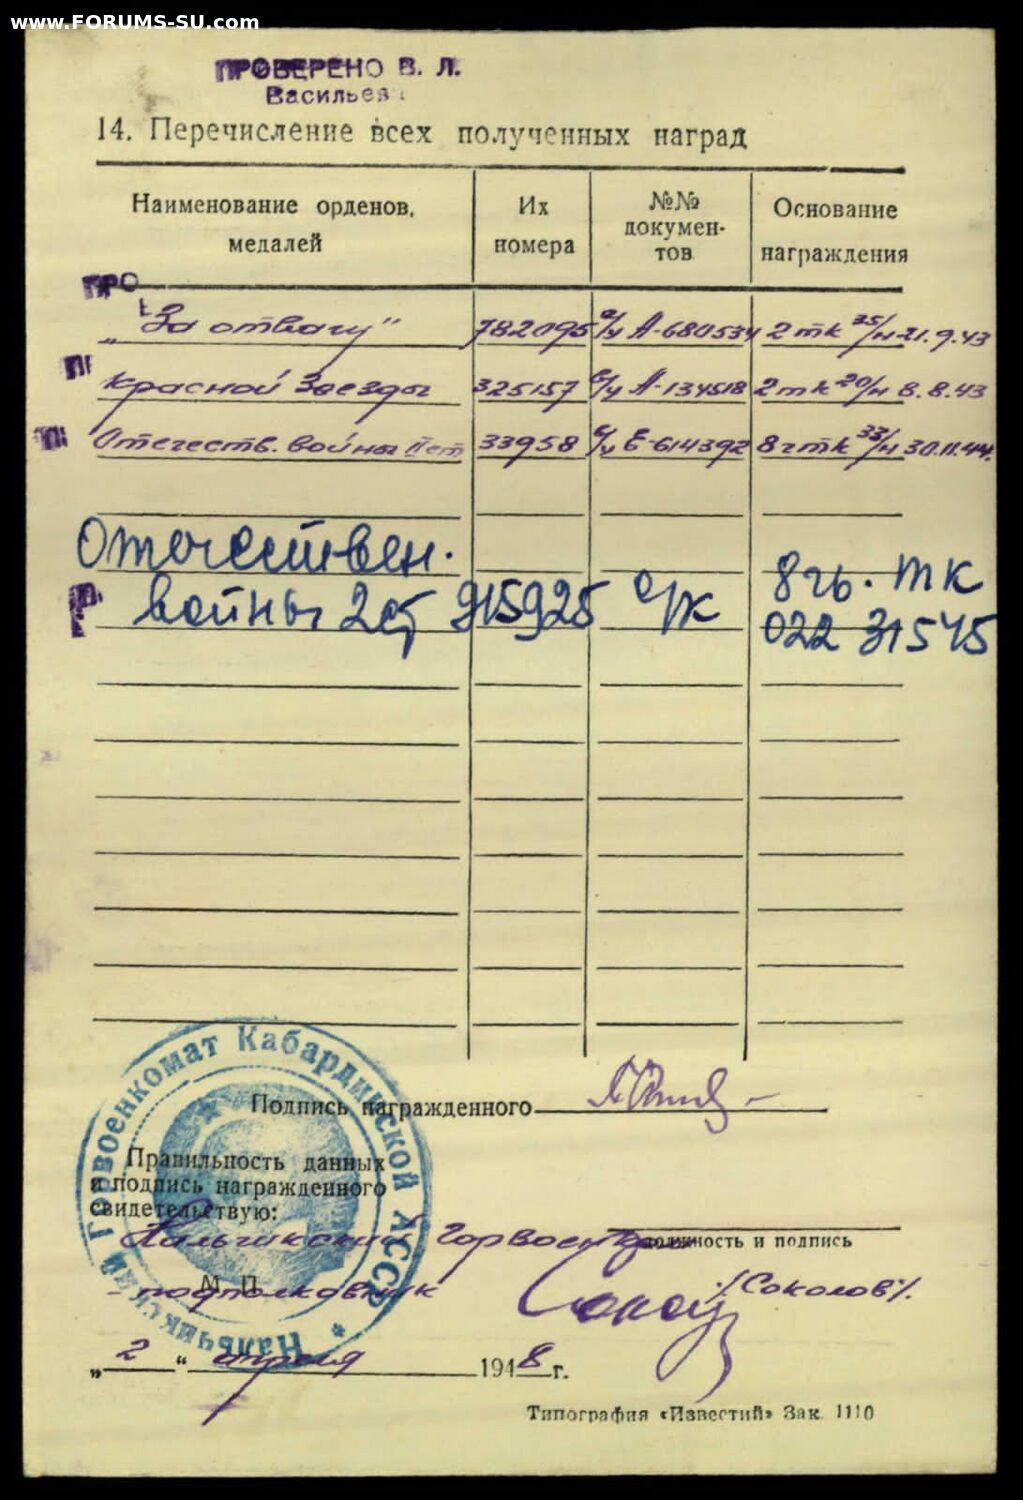 www.FORUMS-SU.com
ПРОВЕРЕНО В. Л.
Васильев
14. Перечисление всех полученных наград
Наименование орденов, медалей
Их номера
№№ документов
Основание награждения
ПРО
„За отвагу" 782095 А-680534 2 тк 35/н-21.9.43
Красной Звезды 325157 А-134518 2 тк 20/н 8.8.43
Отечеств. войны 33958 Е-614392 8 гтк 33/н 30.11.44.
Отечествен.
войны 2 ст 915925 о/к 8 гв. тк
022 31545
Подпись награжденного
Правильность данных
и подпись награжденного
свидетельствую:
Нальчикский Горвоенком
должность и подпись
М. П.
подполковник
/Соколов/.
„2" апреля 1948 г.
Нальчикский Горвоенкомат Кабардинской АССР *
Типография «Известий» Зак. 1110